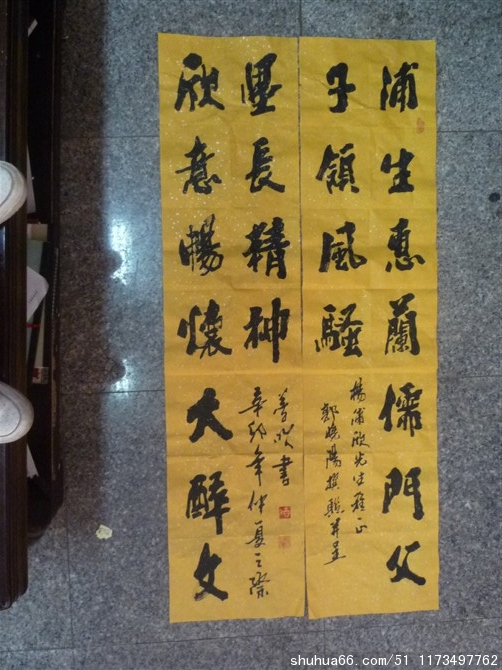 浦生惠蘭儒門父
子領風騷
楊浦欣先生雅正
郭曉陽撰聯并呈
欣意暢懷大醉文
墨長精神
善堂書
辛卯年仲夏之際
shuhua66.com/51_1173497762